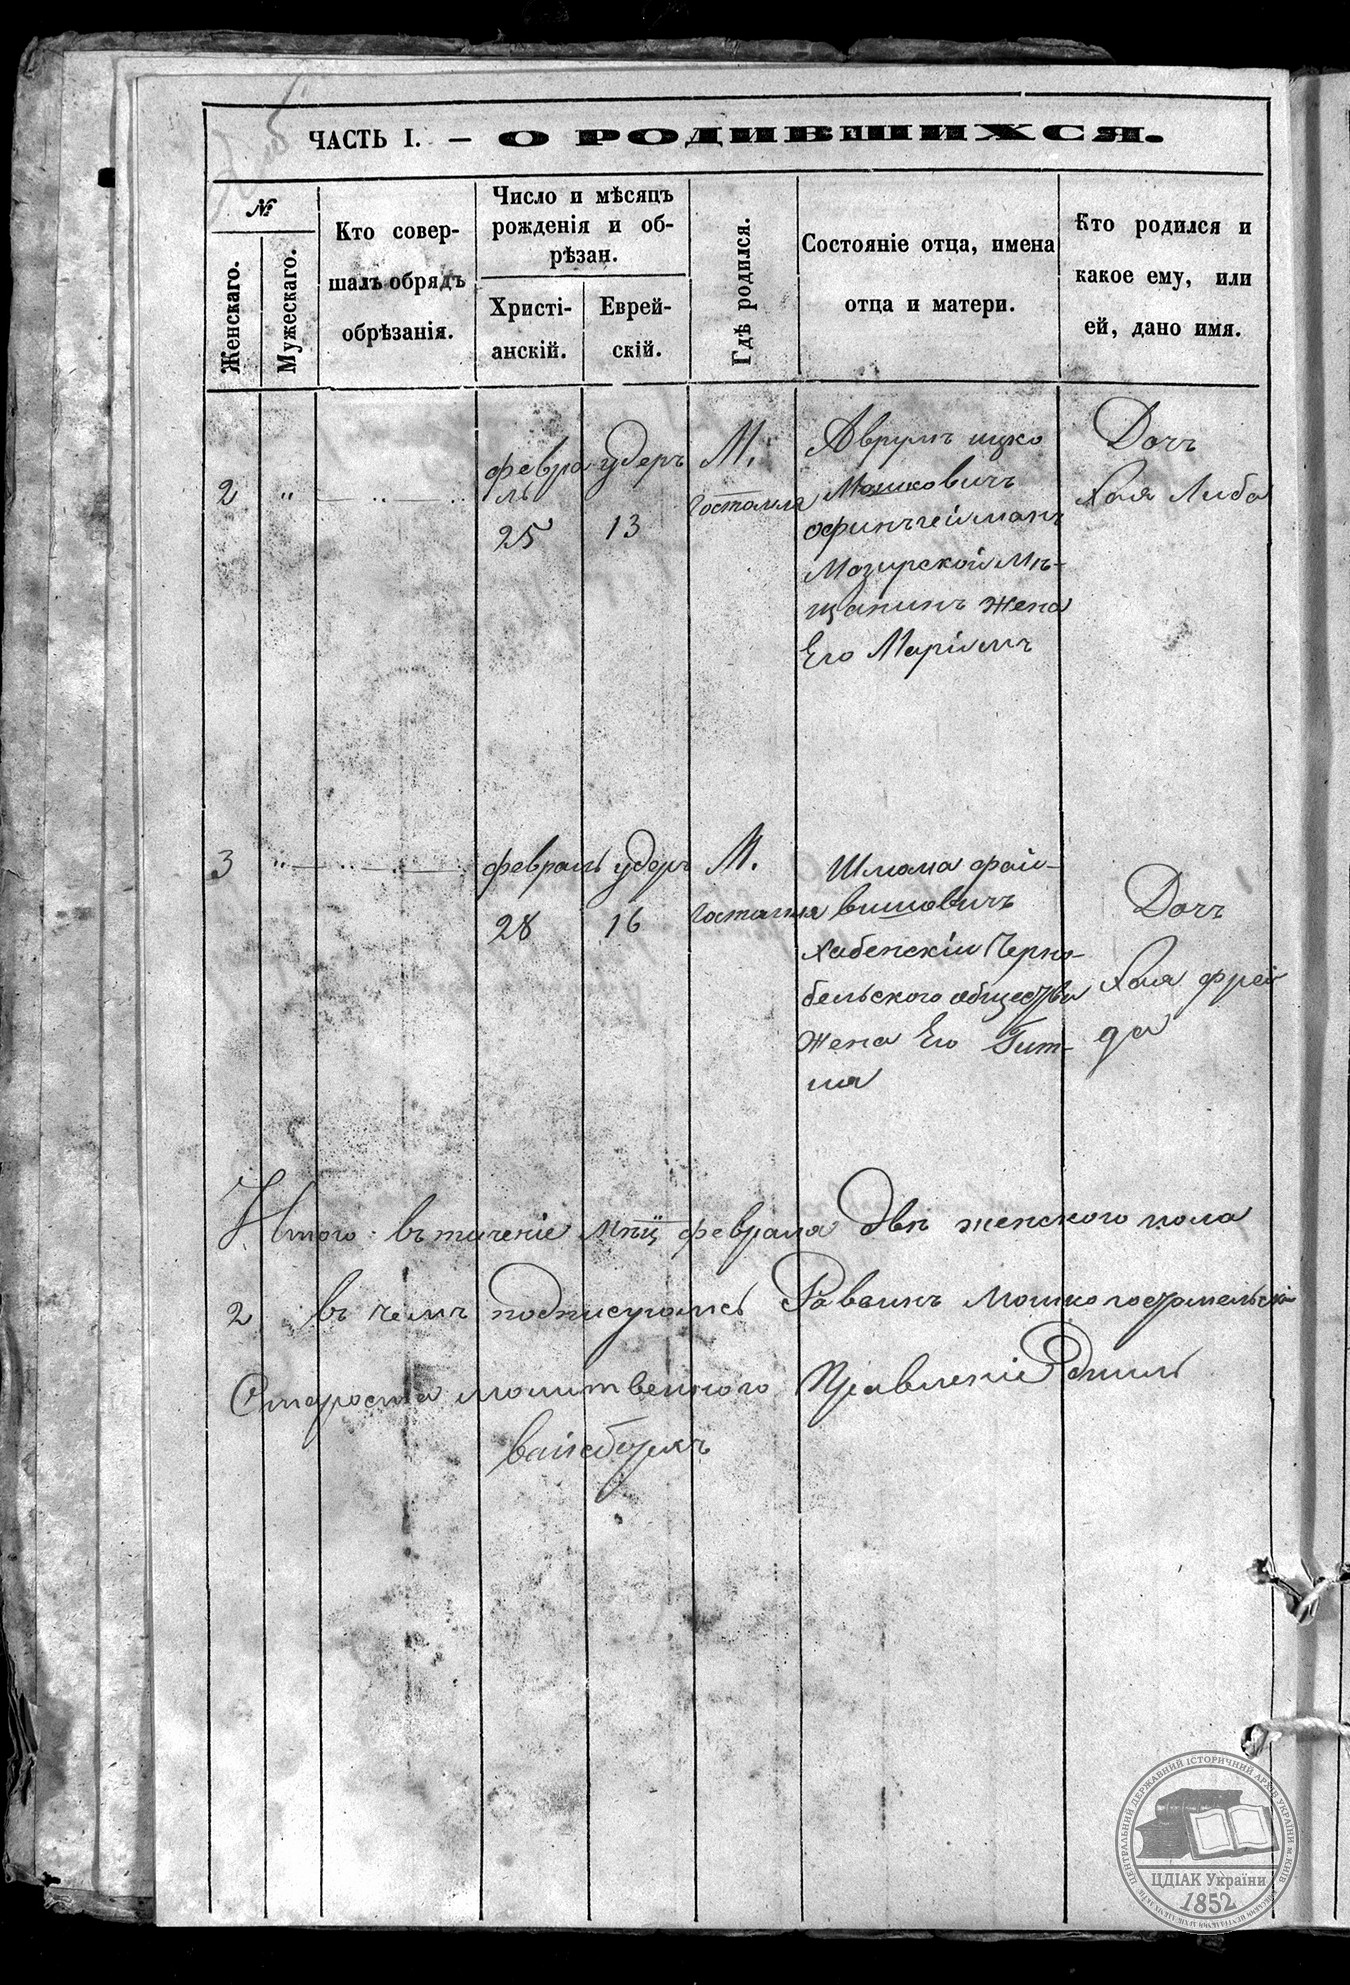 ЧАСТЬ I. — О РОДИВШИХСЯ.
№
Женскаго.
Мужескаго.
Кто совер-
шалъ обрядъ
обрѣзанія.
Число и мѣсяцъ
рожденія и об-
рѣзан.
Христі-
анскій.
Еврей-
скій.
Гдѣ родился.
Состояніе отца, имена
отца и матери.
Кто родился и
какое ему, или
ей, дано имя.
2
"
февра
ль
25
удеръ
13
М.
Гостомля
Аврумъ ицко
Мошковичъ
Мозирской Мѣ-
щанинъ жена
Его Маріямъ
Дочъ
Хая Либа
3
"
февраль
28
удеръ
16
М.
Гостомля
Шлома фай-
вишовичъ
хабенскій Черно-
бельского общества
жена Его Гит-
ля
Дочъ
Хая фрей
да
Итого въ тичение мѣц февраля двѣ женского пола
2 въ чемъ подписуемъ Раввинъ Мошко гостомельски
Староста молитвенного Правление
вайсбурхъ
ЦЕНТРАЛЬНИЙ ДЕРЖАВНИЙ ІСТОРИЧНИЙ АРХІВ УКРАЇНИ м. КИЇВ
ЦДІАК України
1852